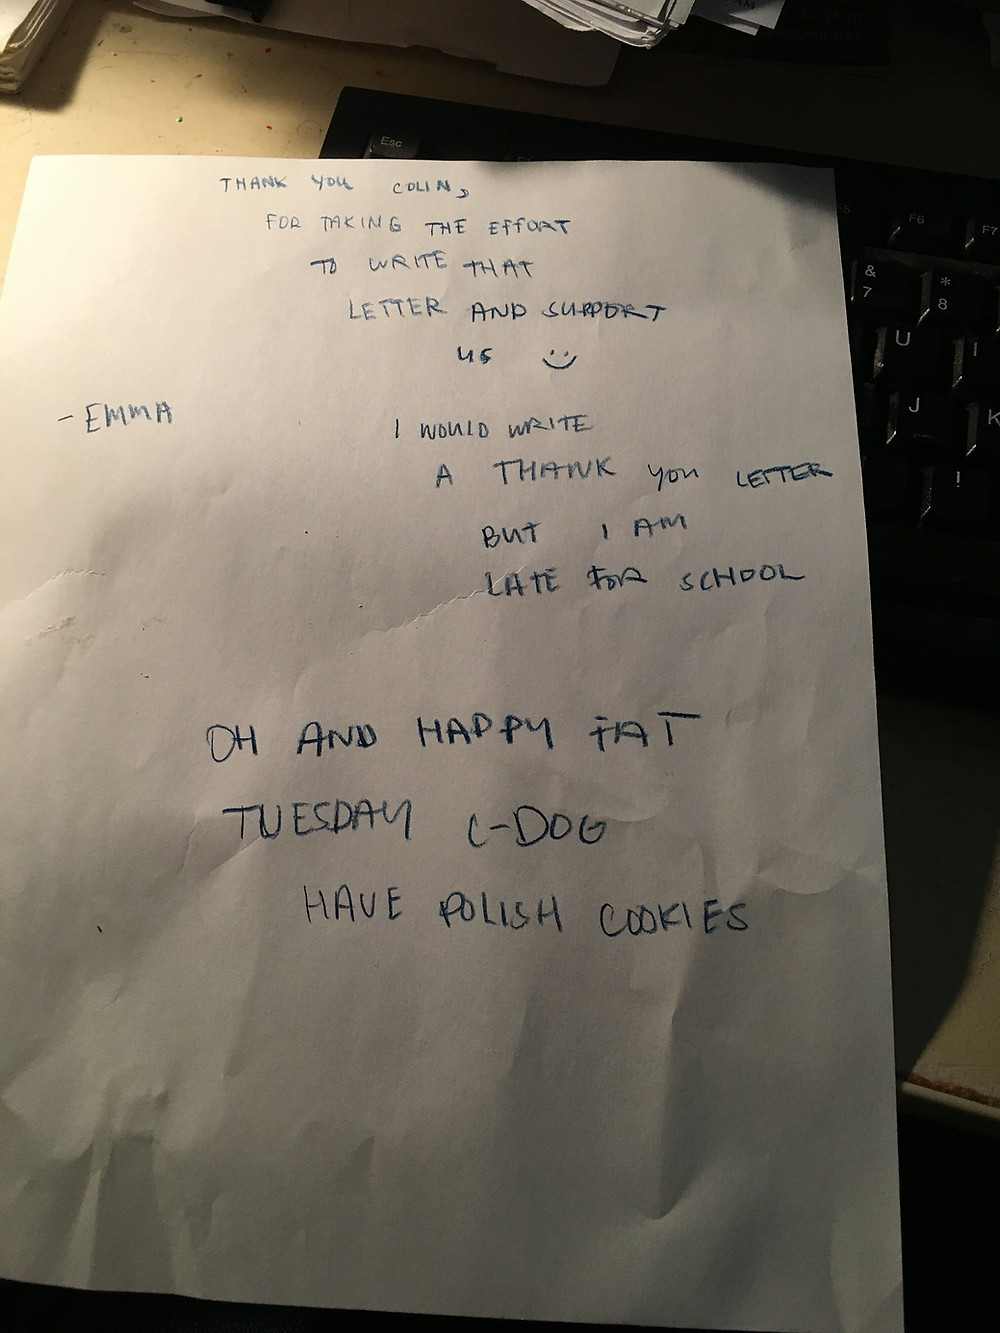 THANK YOU COLIN,
FOR TAKING THE EFFORT
TO WRITE THAT
LETTER AND SUPPORT
US :)
- EMMA
I WOULD WRITE
A THANK YOU LETTER
BUT I AM
LATE FOR SCHOOL
OH AND HAPPY FAT
TUESDAY C-DOG
HAVE POLISH COOKIES
Esc
F5
F6
F7
& 7
* 8
U
I
J
K
!
AM